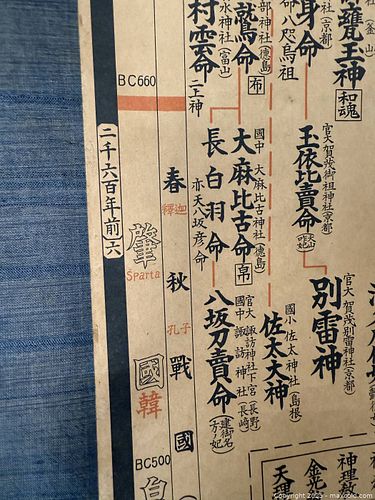 村雲命
水神社(富山)
二上神
鷲命
部神社(徳島)
布
命八咫烏祖
身命
社(京都)
甕玉神
(釜山)
和魂
BC660
二千六百年前
六
肇
Sparta
國
韓
BC500
春
釋迦
秋
孔子
戰
國
長白羽命
亦天八坂彦命
大麻比古命
國中 大麻比古神社(德島)
帛
八坂刀賣命
官大 諏訪神社二宮(長野)
國中 諏訪神社(長崎)
建御名方ノ妃
佐太大神
國小 佐太神社(島根)
玉依比賣命
官大 賀茂御祖神社(京都)
別雷神
官大 賀茂別雷神社(京都)
神理教
金光
天理
Copyright 2025 - maxsold.com